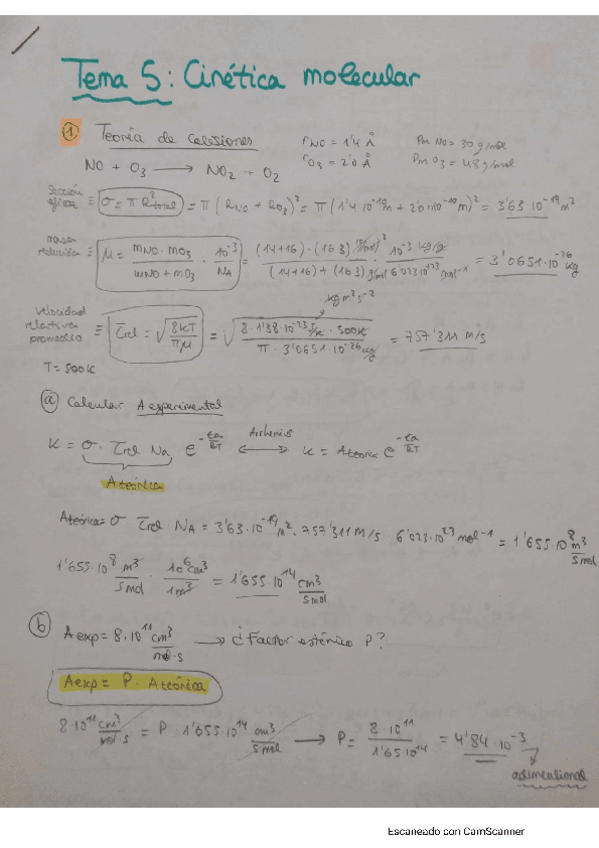 Tema 5: Cinética molecular
① Teoría de colisiones
rNO = 1'4 Å
Pm NO = 30 g/mol
NO + O3 → NO2 + O2
rO3 = 2'0 Å
Pm O3 = 48 g/mol
Sección eficaz ≡ σ = π R²total = π (RNO + RO3)² = π (1'4·10⁻¹⁰m + 2'0·10⁻¹⁰m)² = 3'63·10⁻¹⁹m²
masa reducida ≡ μ = mNO·mO3 / mNO+mO3 · 10⁻³/NA = (14+16)·(16·3) (g/mol)² / (14+16)+(16·3) g/mol · 10⁻³ kg/g / 6'023·10²³ mol⁻¹ = 3'0651·10⁻²⁶ kg
kg m² s⁻²
Velocidad relativa promedio ≡ c̄rel = √(8kT/πμ) = √(8·1'38·10⁻²³ J/K · 500K / π·3'0651·10⁻²⁶ kg) = 757'311 m/s
T = 500K
ⓐ Calcular A experimental
K = σ · c̄rel NA e^(-Ea/RT) ←Arrhenius→ K = Ateórica e^(-Ea/RT)
Ateórica
Ateórica = σ c̄rel NA = 3'63·10⁻¹⁹m² · 757'311 m/s · 6'023·10²³ mol⁻¹ = 1'655·10⁸ m³/s mol
1'655·10⁸ m³/s mol · 10⁶cm³/1m³ = 1'655·10¹⁴ cm³/s mol
ⓑ Aexp = 8·10¹¹ cm³/mol·s → ¿Factor estérico P?
Aexp = P · Ateórica
8·10¹¹ cm³/mol·s = P · 1'655·10¹⁴ cm³/s mol → P = 8·10¹¹ / 1'65·10¹⁴ = 4'84·10⁻³
adimensional
Escaneado con CamScanner